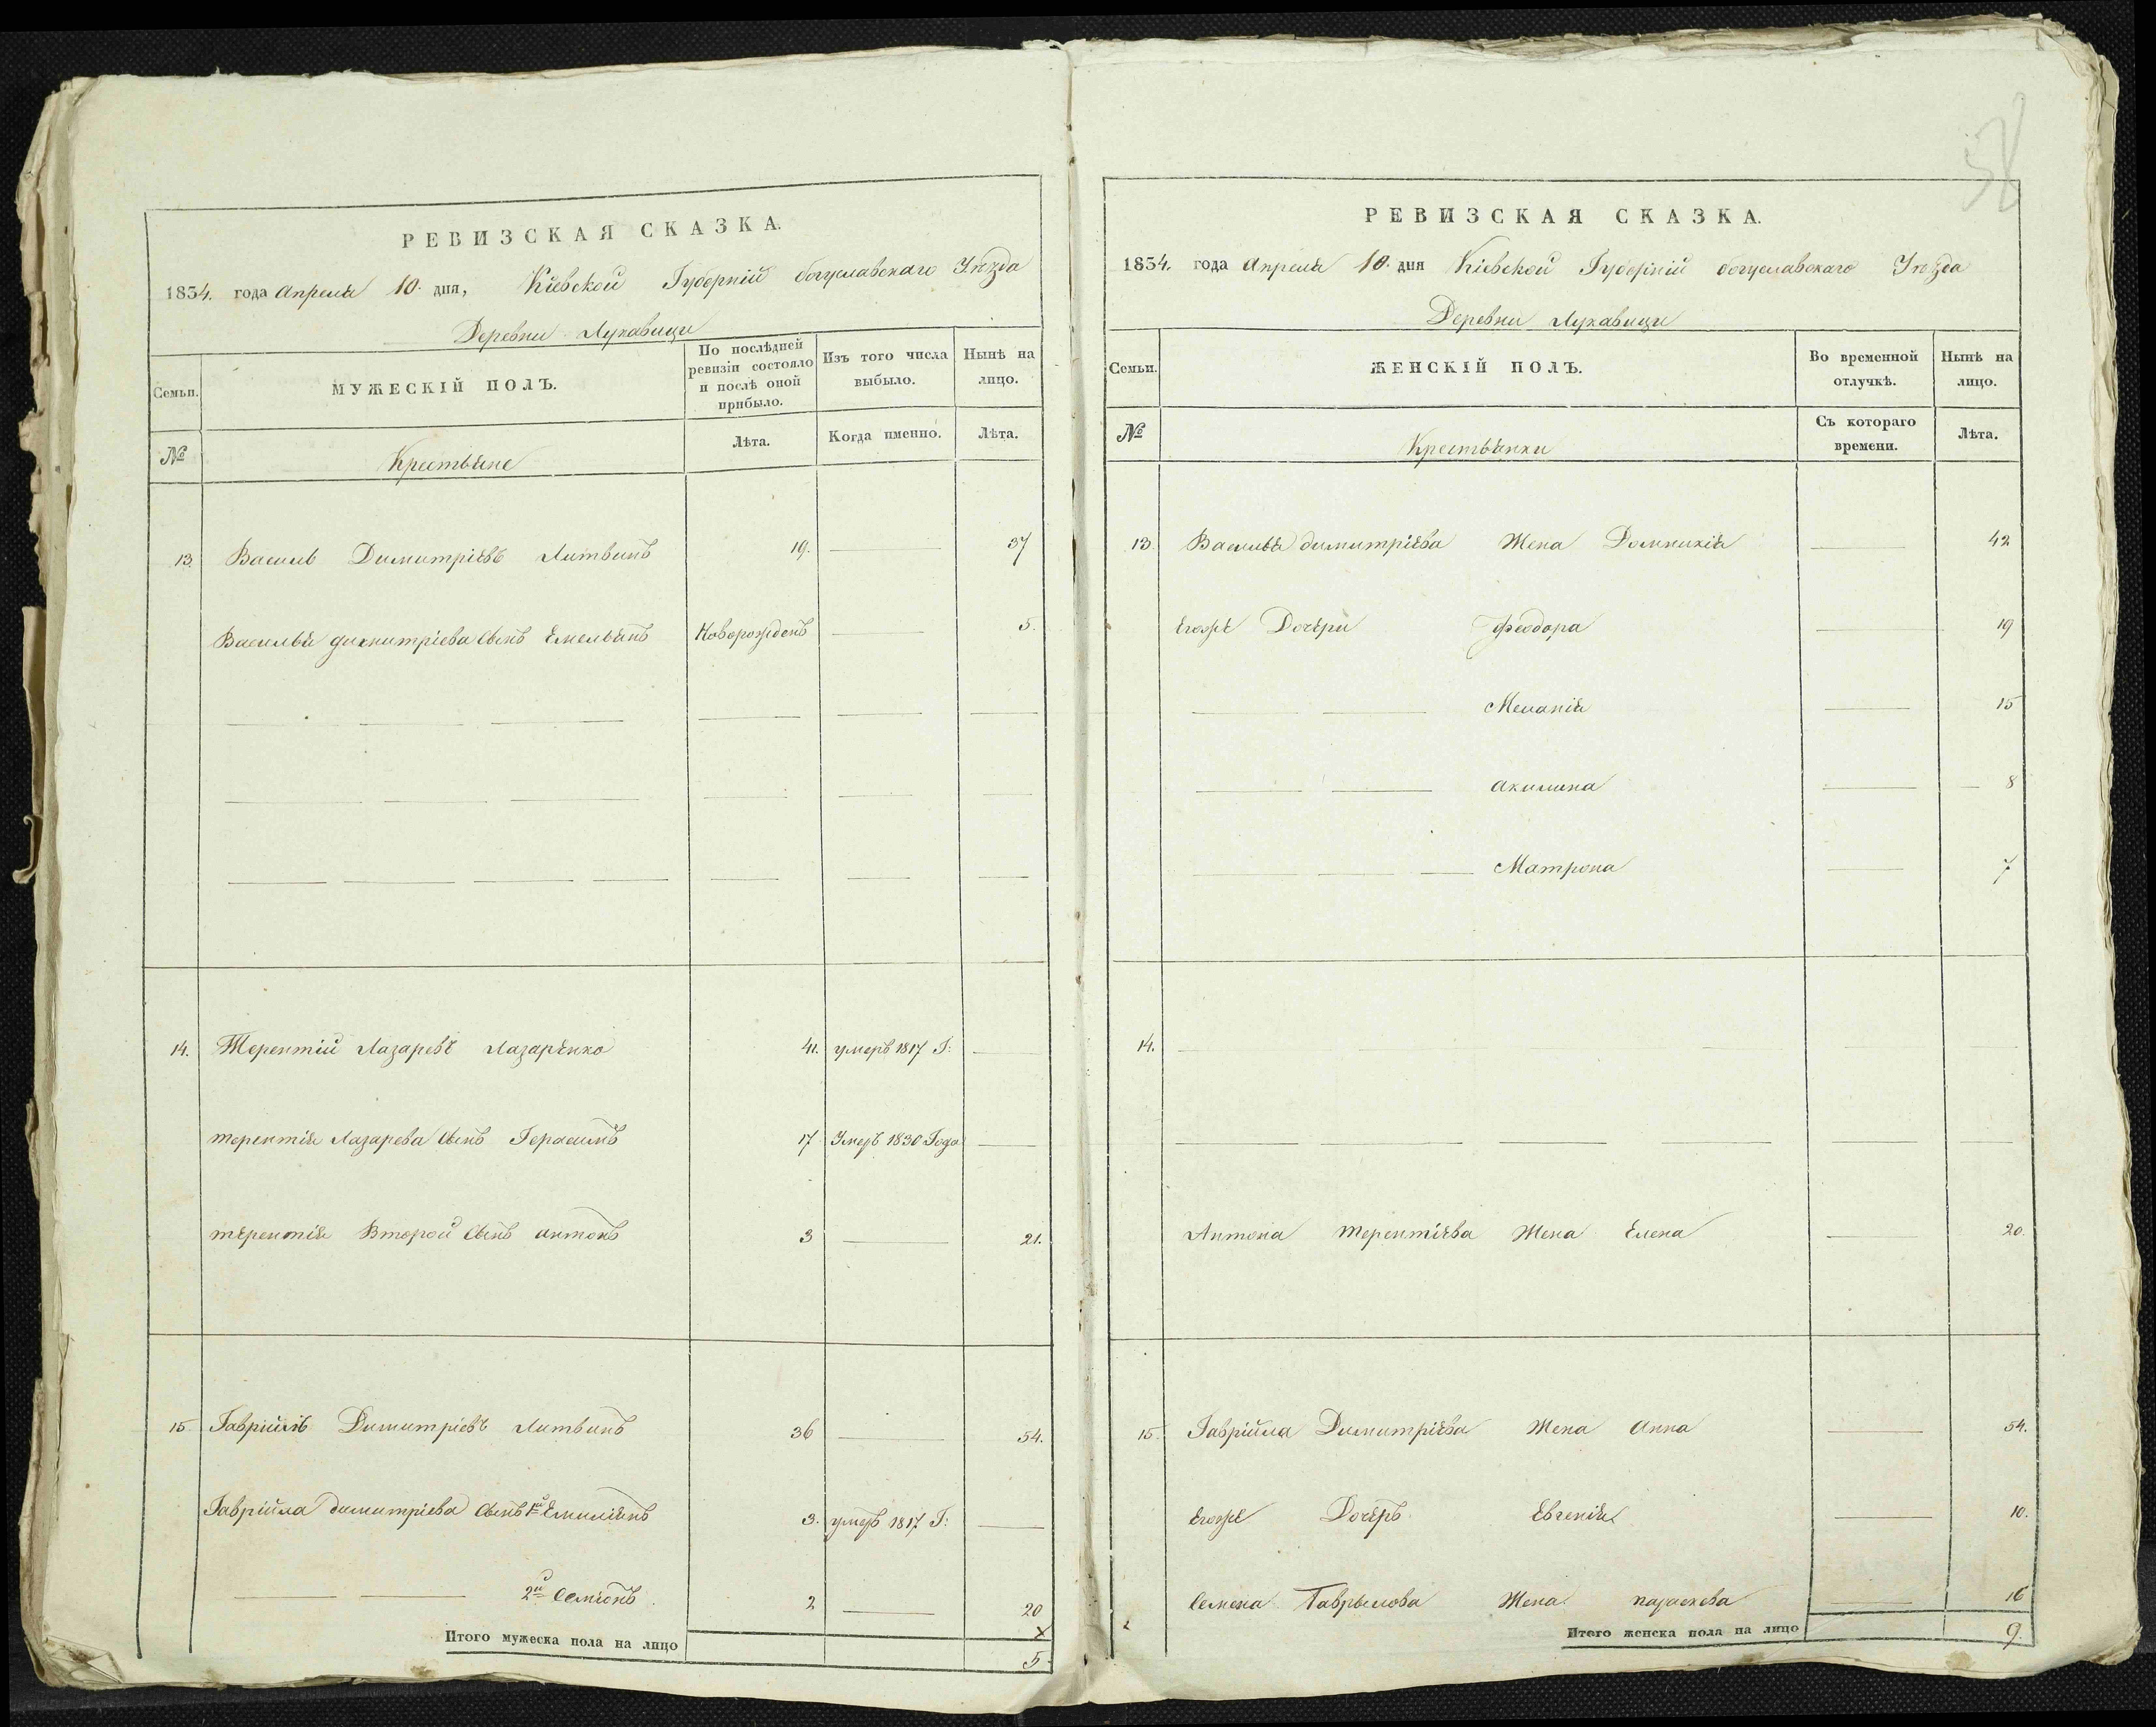 РЕВИЗСКАЯ СКАЗКА.
1834. года Апреля 10. дня, Кіевской Губерній богуславскаго Уѣзда
Деревни Лукавици
Семьи.
МУЖЕСКІЙ ПОЛЪ.
По послѣдней ревизіи состояло и послѣ оной прибыло.
Изъ того числа выбыло.
Нынѣ на лицо.
№
Крестьяне
Лѣта.
Когда именно.
Лѣта.
13. Василь Димитріевъ Литвинъ 19. 37
Василья димитріева Сынъ Емельянъ Новорожденъ 5.
14. Терентій Лазаревъ Лазаренко 41. умеръ 1817 Г:
терентія Лазарева Сынъ Герасимъ 17 Умеръ 1830 Года
терентія Второй Сынъ антонъ 3 21.
15 Гавріилъ Димитріевъ Литвинъ 36 54.
Гаврійла димитріева Сынъ 1й Емиліянъ 3. умеръ 1817 Г:
2й Семіонъ 2 20
Итого мужеска пола на лицо 5
58
РЕВИЗСКАЯ СКАЗКА.
1834. года Апреля 10. дня Кіевской Губерній богуславскаго Уѣзда
Деревни Лукавици
Семьи.
ЖЕНСКІЙ ПОЛЪ.
Во временной отлучкѣ.
Нынѣ на лицо.
№
Крестьянки
Съ котораго времени.
Лѣта.
13. Василья димитріева Жена Домникія 42
Егоже Дочери Феодора 19
Меланія 15
акилина 8
Матрона 7
14.
Антона терентіева Жена Елена 20.
15. Гаврійла Димитріева Жена Анна 54.
Егоже Дочерь Евгенія 10.
Семена Гаврылова Жена параскева 16
Итого женска пола на лицо 9.